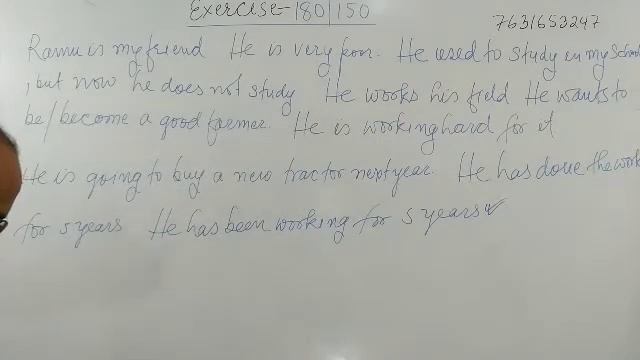 Exercise-180/150
7631653247
Ramu is my friend He is very poor. He used to study in my School
, but now he does not study He works his field He wants to
be/become a good farmer. He is working hard for it
He is going to buy a new tractor next year. He has done the work
for 5 years He has been working for 5 years